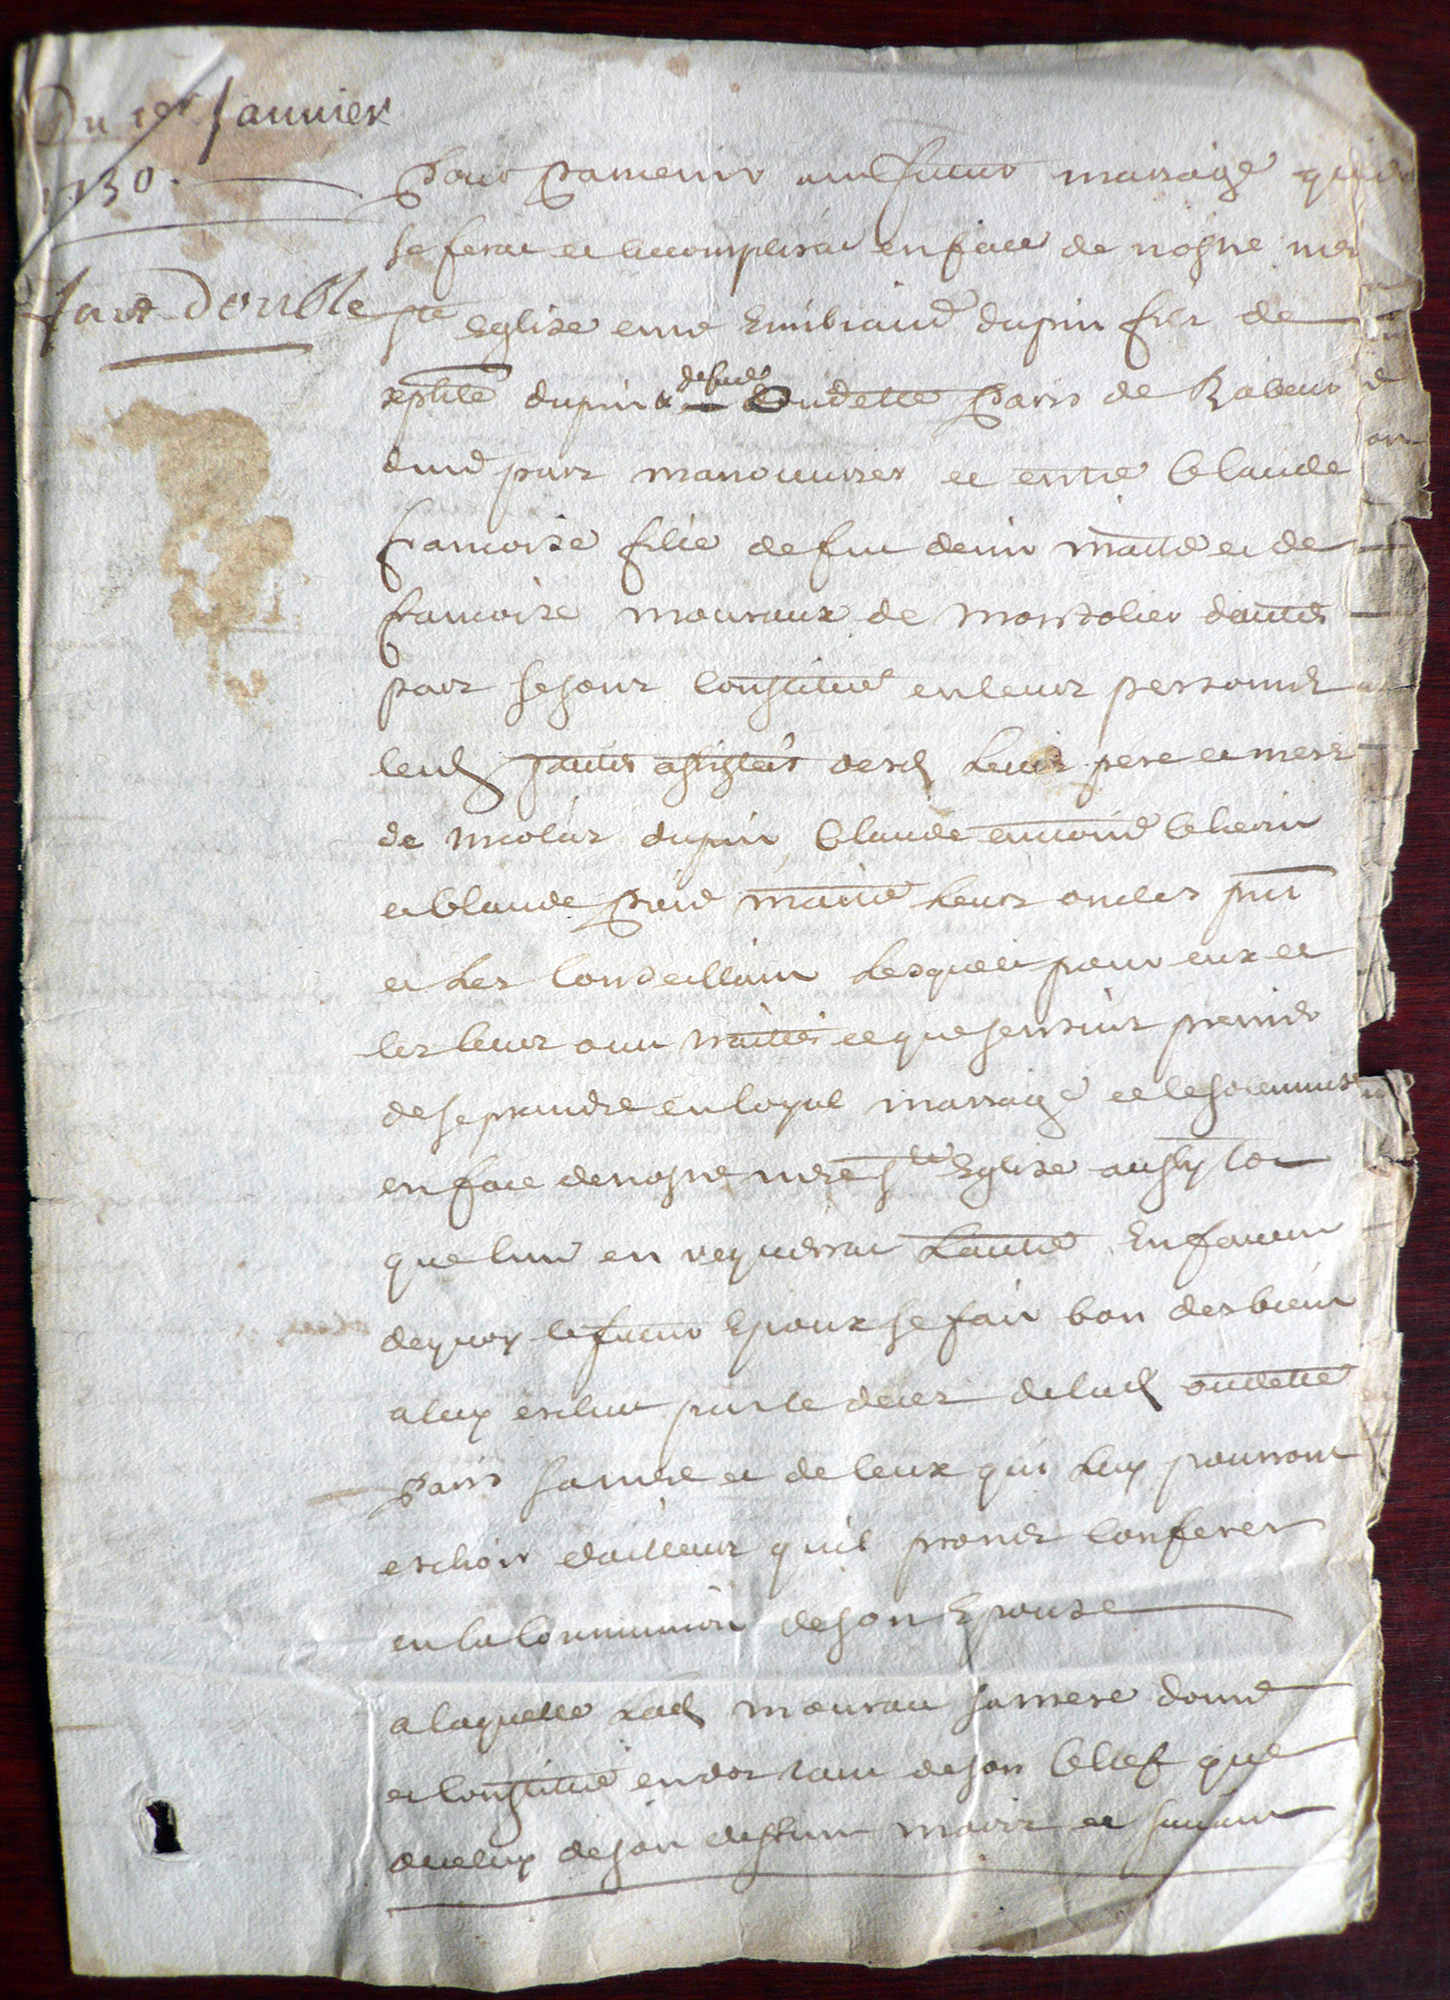 Du 1er Januier
1730.
fait Double
Pour Paruenir au futur mariage qui
se ferat et accomplirat en face de nostre mer
ste Eglise entre dupin fils de
dupin & defuncte Oudette Paris de
dud part manouurier et entre Claude
francoise fille de fut denis et de
francoise mouraux de montolier
part se sont constitué en leurs personnes
leud parties assistés desd Leurs pere et mere
de nicolas dupin, Claude
et Claude Leurs oncles
et Les Conseillant Lesquels pour eux et
les leurs ont traittes ce que sensuit premier
de se prandre en loyal mariage et le solemnise
en face de nostre mere ste Eglise aussy tot
que lune en requerrat Lautre En faueur
dequoy le futur Epoux se fait bon des biens
a luy eschut par le deces de lad oudette
Paris sa mere et de ceux qui Luy pourront
eschoir dailleurs quil promet conferer
en la Communion de son Epouse
a laquelle Lad mourau sa mere donne
et Constitue en dot tant de son Chef que
de celuy de son deffunt marit et suiuant